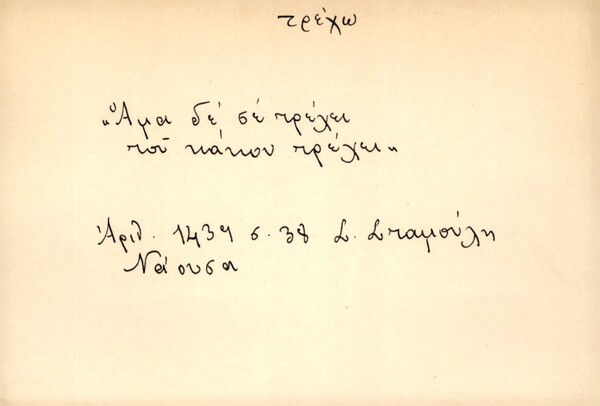 τρέχω
„Ἅμα δέ σέ τρέχει
τοῦ κάκου τρέχει"
Ἀριθ. 1439 σ. 38 Σ. Σταμούλη
Νάουσα